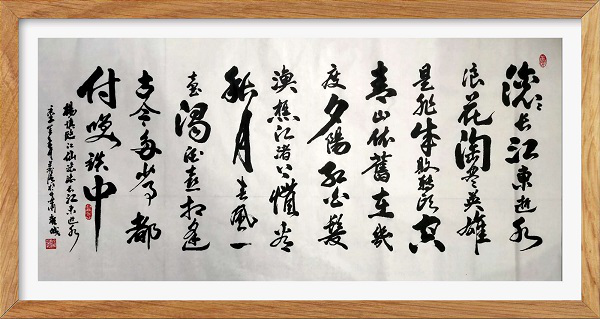 滚々长江東逝水
浪花淘尽英雄
是非成败转头空
青山依舊在幾
度夕陽红白髮
渔樵江渚上惯看
秋月春風一
壶濁酒喜相逢
古今多少事都
付笑谈中
楊慎临江仙滚滚长江东逝水